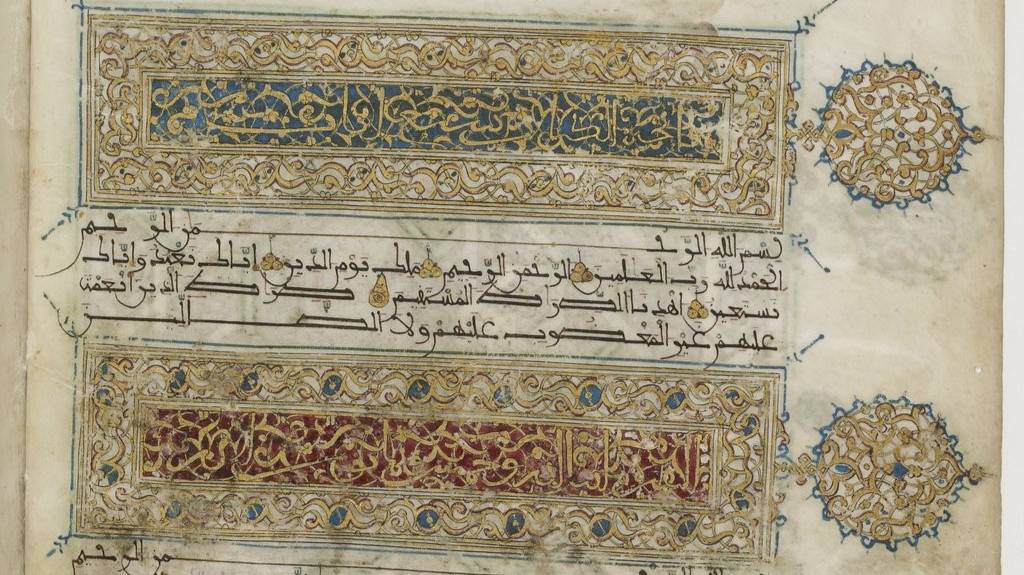 فاتحة الكتاب
بسم الله الرحمن الرحيم
الحمد لله رب العلمين الرحمن الرحيم ملك يوم الدين اياك نعبد واياك
نستعين اهدنا الصراط المستقيم صراط الذين انعمت
عليهم غير المغضوب عليهم ولا الضالين
البقرة
الرحمن الرحيم